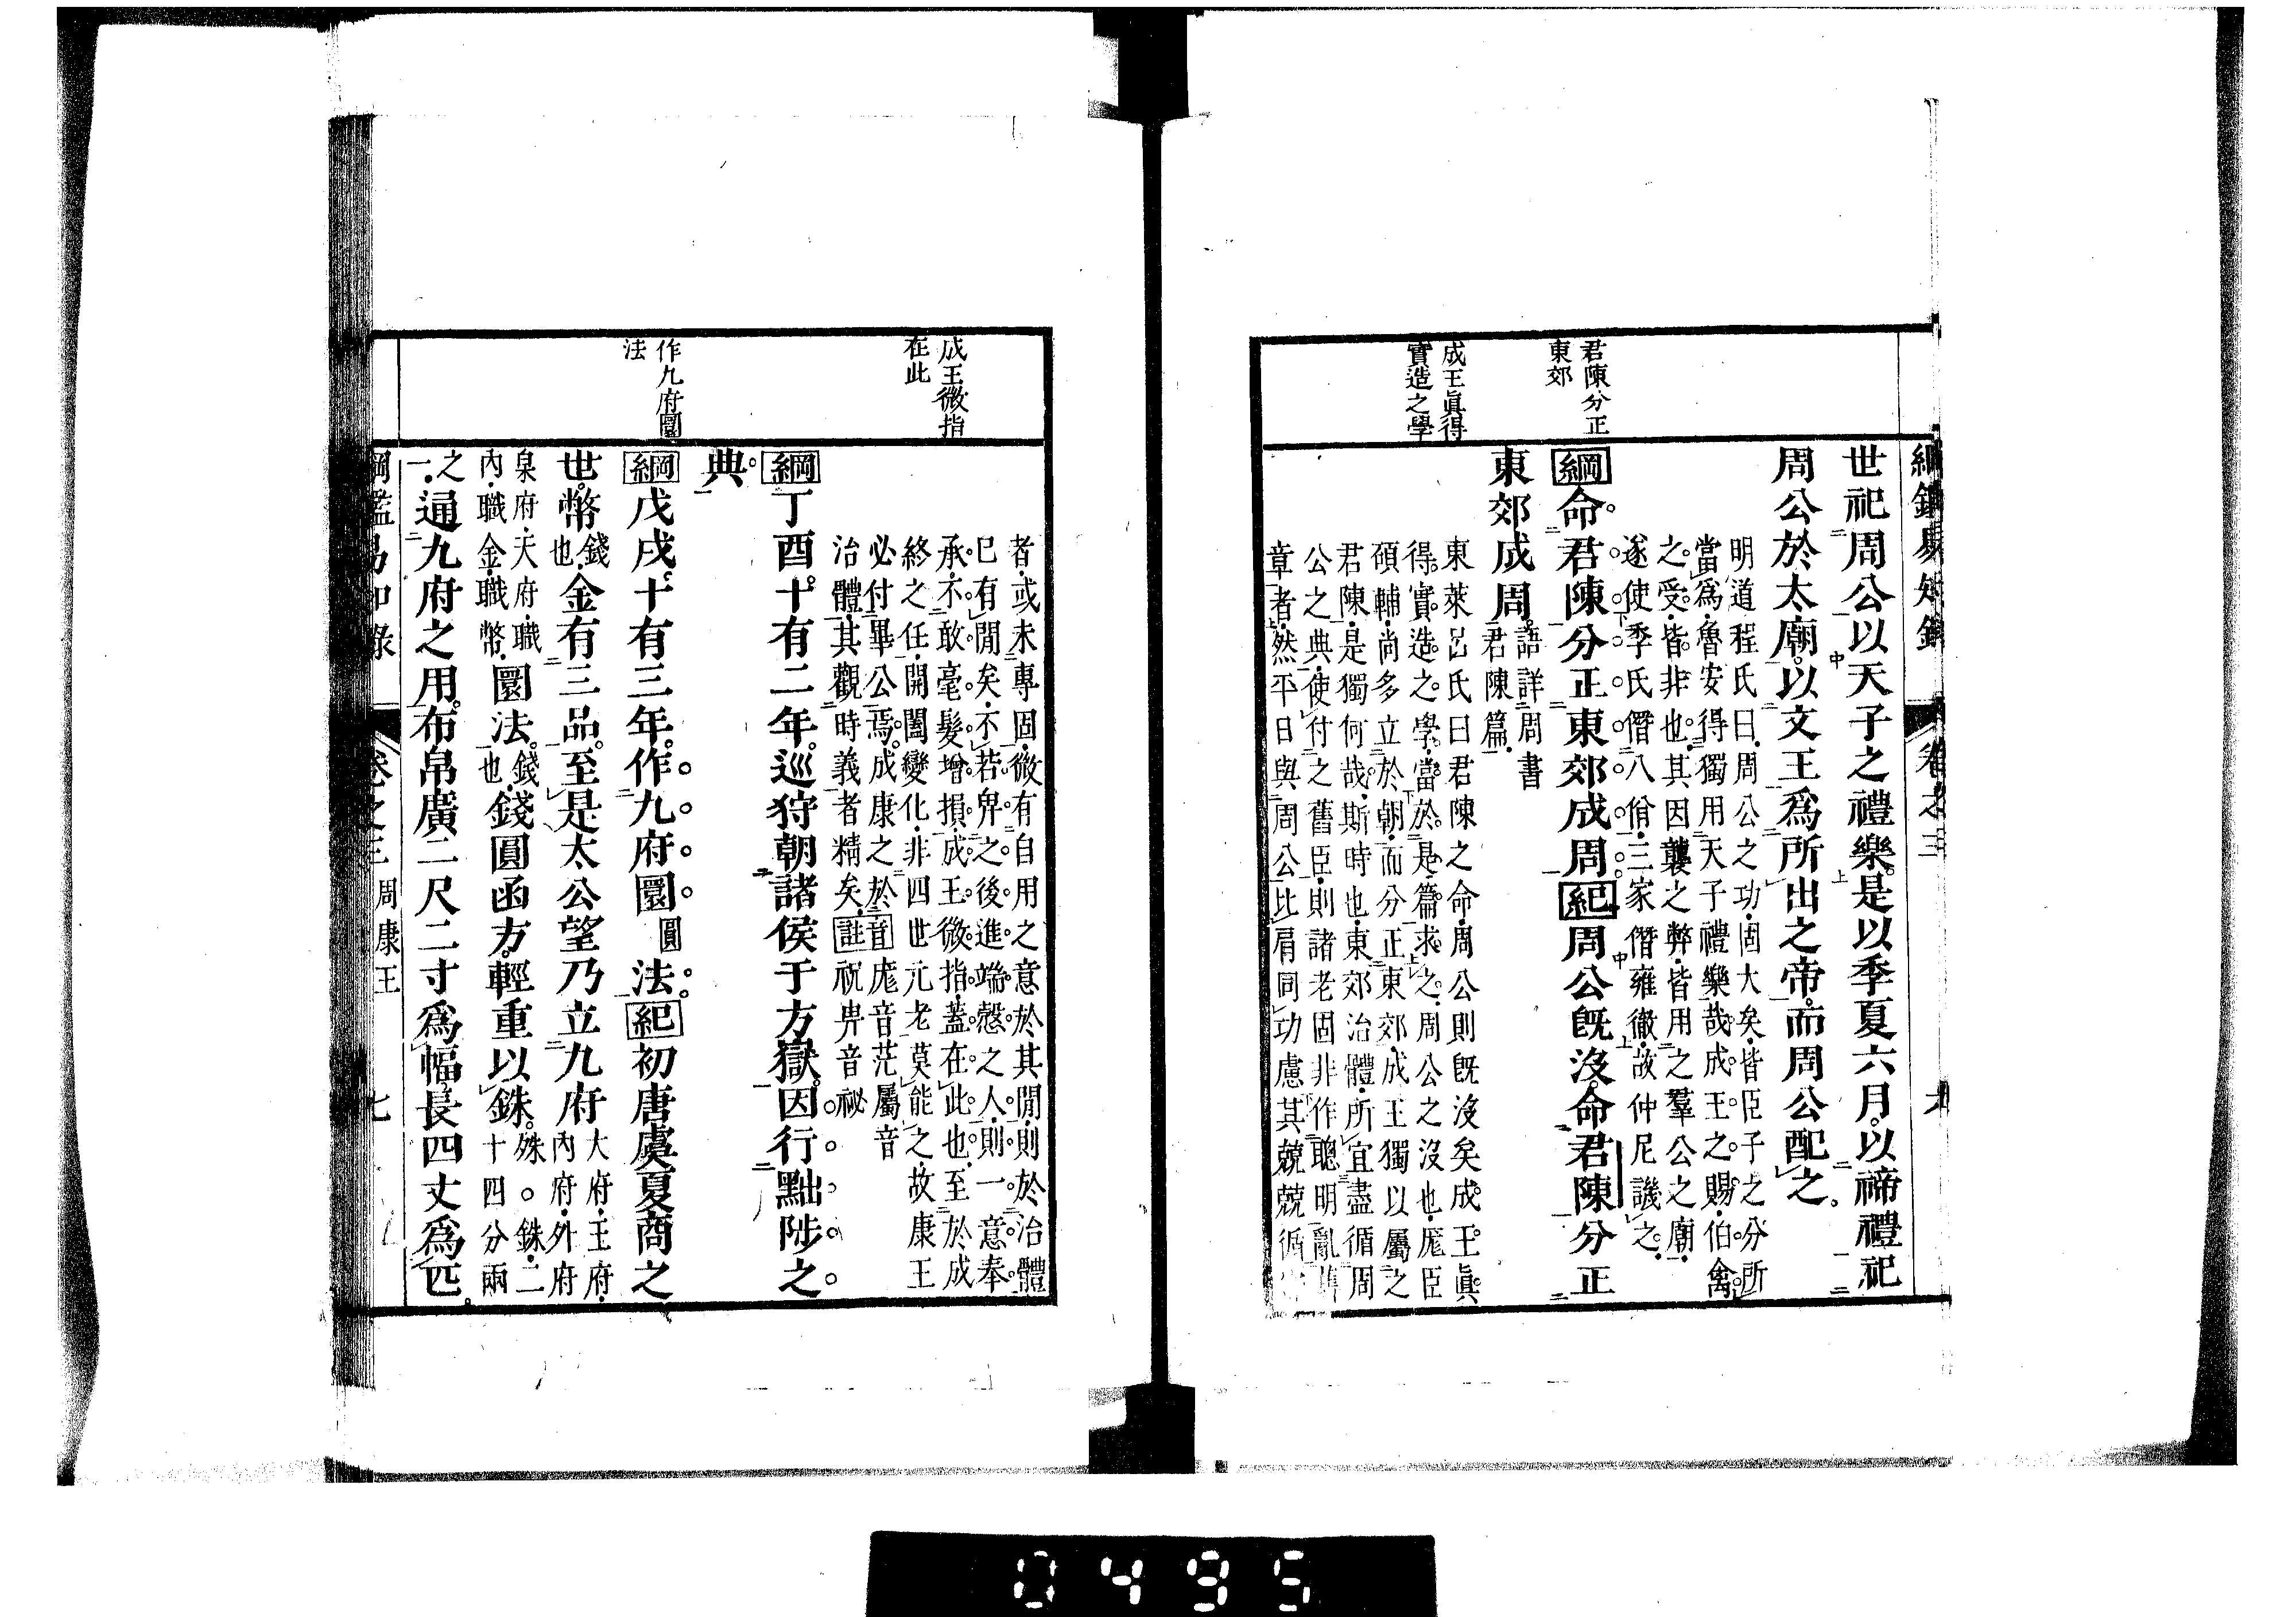 綱鑑易知錄 卷之三 六
君陳分正
東郊
成王眞得
實造之學
世祀周公以天子之禮樂是以季夏六月以禘禮祀
周公於太廟以文王爲所出之帝而周公配之
明道程氏曰周公之功固大矣皆臣子之分所
當爲魯安得獨用天子禮樂哉成王之賜伯禽
之受皆非也其因襲之弊皆用之羣公之廟
遂使季氏僭八佾三家僭雍徹故仲尼譏之
綱命君陳分正東郊成周紀周公旣沒命君陳分正
東郊成周語詳周書
君陳篇
東萊呂氏曰君陳之命周公則旣沒矣成王眞
得實造之學當於是篇求之周公之沒也厖臣
碩輔尚多立於朝而分正東郊成王獨以屬之
君陳是獨何哉斯時也東郊治體所宜盡循周
公之典使付之舊臣則諸老固非作聰明亂舊
章者然平日與周公比肩同功慮其兢兢循
成王微指
在此
作九府圜
法
者或未專固微有自用之意於其閒則於治體
巳有閒矣不若畀之後進端慤之人則一意奉
承不敢毫髮增損成王微指蓋在此也至於成
終之任開闔變化非四世元老莫能之故康王
必付畢公焉成康之於
治體其觀時義者精矣
音厖音茫屬音
註祝畀音祕
綱丁酉十有二年巡狩朝諸侯于方嶽因行黜陟之
典
綱戊戌十有三年作九府圜圓法紀初唐虞夏商之
世幣錢
也金有三品至是太公望乃立九府大府王府
內府外府
泉府天府職
內職金職幣圜法錢
也錢圓函方輕重以銖殊○銖二
十四分兩
之
一通九府之用布帛廣二尺二寸爲幅長四丈爲匹
綱鑑易知錄 卷之三 周康王 七
0495